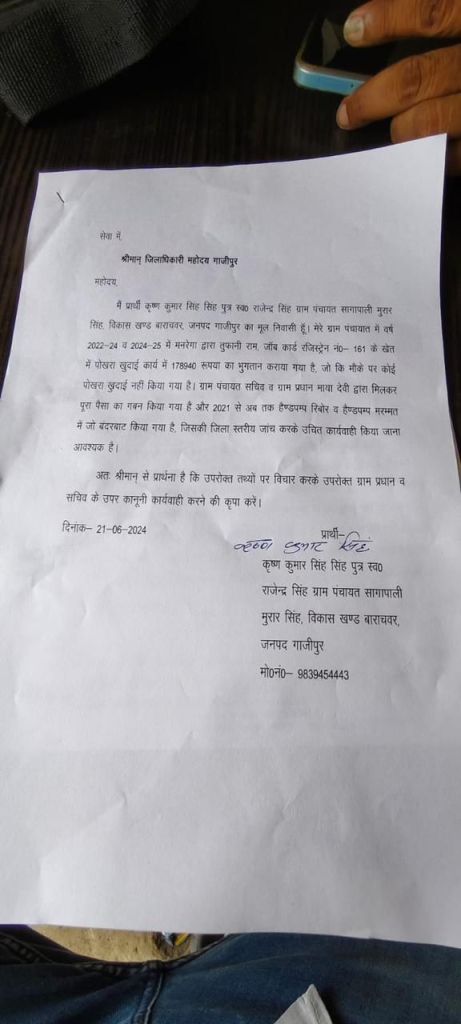 सेवा में,
श्रीमान् जिलाधिकारी महोदय गाजीपुर
महोदय,
मैं प्रार्थी कृष्ण कुमार सिंह सिंह पुत्र स्व0 राजेन्द्र सिंह ग्राम पंचायत सागापाली मुरार
सिंह, विकास खण्ड बाराचवर, जनपद गाजीपुर का मूल निवासी हूँ। मेरे ग्राम पंचायात में वर्ष
2022-24 व 2024-25 में मनरेगा द्वारा तुफानी राम, जॉब कार्ड रजिस्ट्रेन नं0- 161 के खेत
में पोखरा खुदाई कार्य में 178940 रूपया का भुगतान कराया गया है, जो कि मौके पर कोई
पोखरा खुदाई नहीं किया गया है। ग्राम पंचायत सचिव व ग्राम प्रधान माया देवी द्वारा मिलकर
पूरा पैसा का गबन किया गया है और 2021 से अब तक हैण्डपम्प रिबोर व हैण्डपम्प मरम्मत
में जो बंदरबाट किया गया है, जिसकी जिला स्तरीय जांच करके उचित कार्यवाही किया जाना
आवश्यक है।
अतः श्रीमान् से प्रार्थना है कि उपरोक्त तथ्यों पर विचार करके उपरोक्त ग्राम प्रधान व
सचिव के उपर कानूनी कार्यवाही करने की कृपा करें।
दिनांक- 21-06-2024
प्रार्थी-
कृष्ण कुमार सिंह
कृष्ण कुमार सिंह सिंह पुत्र स्व0
राजेन्द्र सिंह ग्राम पंचायत सागापाली
मुरार सिंह, विकास खण्ड बाराचवर,
जनपद गाजीपुर
मो0नं0- 9839454443